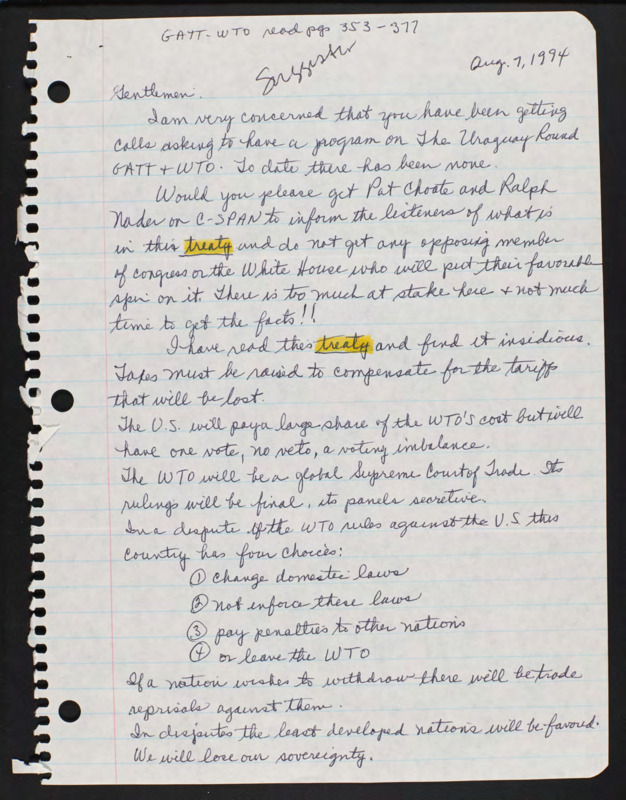 GATT-WTO read pgs 353-377
Suggester
Aug. 7, 1994
Gentlemen:
I am very concerned that you have been getting
calls asking to have a program on The Uraguay Round
GATT + WTO. To date there has been none.
Would you please get Pat Choate and Ralph
Nader on C-SPAN to inform the listeners of what is
in this treaty and do not get any opposing member
of congress or the White House who will put their favorable
spin on it. There is too much at stake here + not much
time to get the facts!!
I have read this treaty and find it insidious.
Taxes must be raised to compensate for the tariffs
that will be lost.
The U.S. will pay a large share of the WTO's cost but will
have one vote, no veto, a voting imbalance.
The WTO will be a global Supreme Court of Trade. Its
rulings will be final, its panels secretive.
In a dispute if the WTO rules against the U.S this
country has four choices:
① change domestic laws
② not enforce these laws
③ pay penalties to other nations
④ or leave the WTO
If a nation wishes to withdraw there will be trade
reprisals against them.
In disputes the least developed nations will be favored.
We will lose our sovereignty.